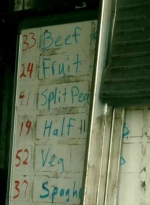 33 Beef
24 Fruit
41 Split Pea
19 Half
52 Veg
37 Spaghe